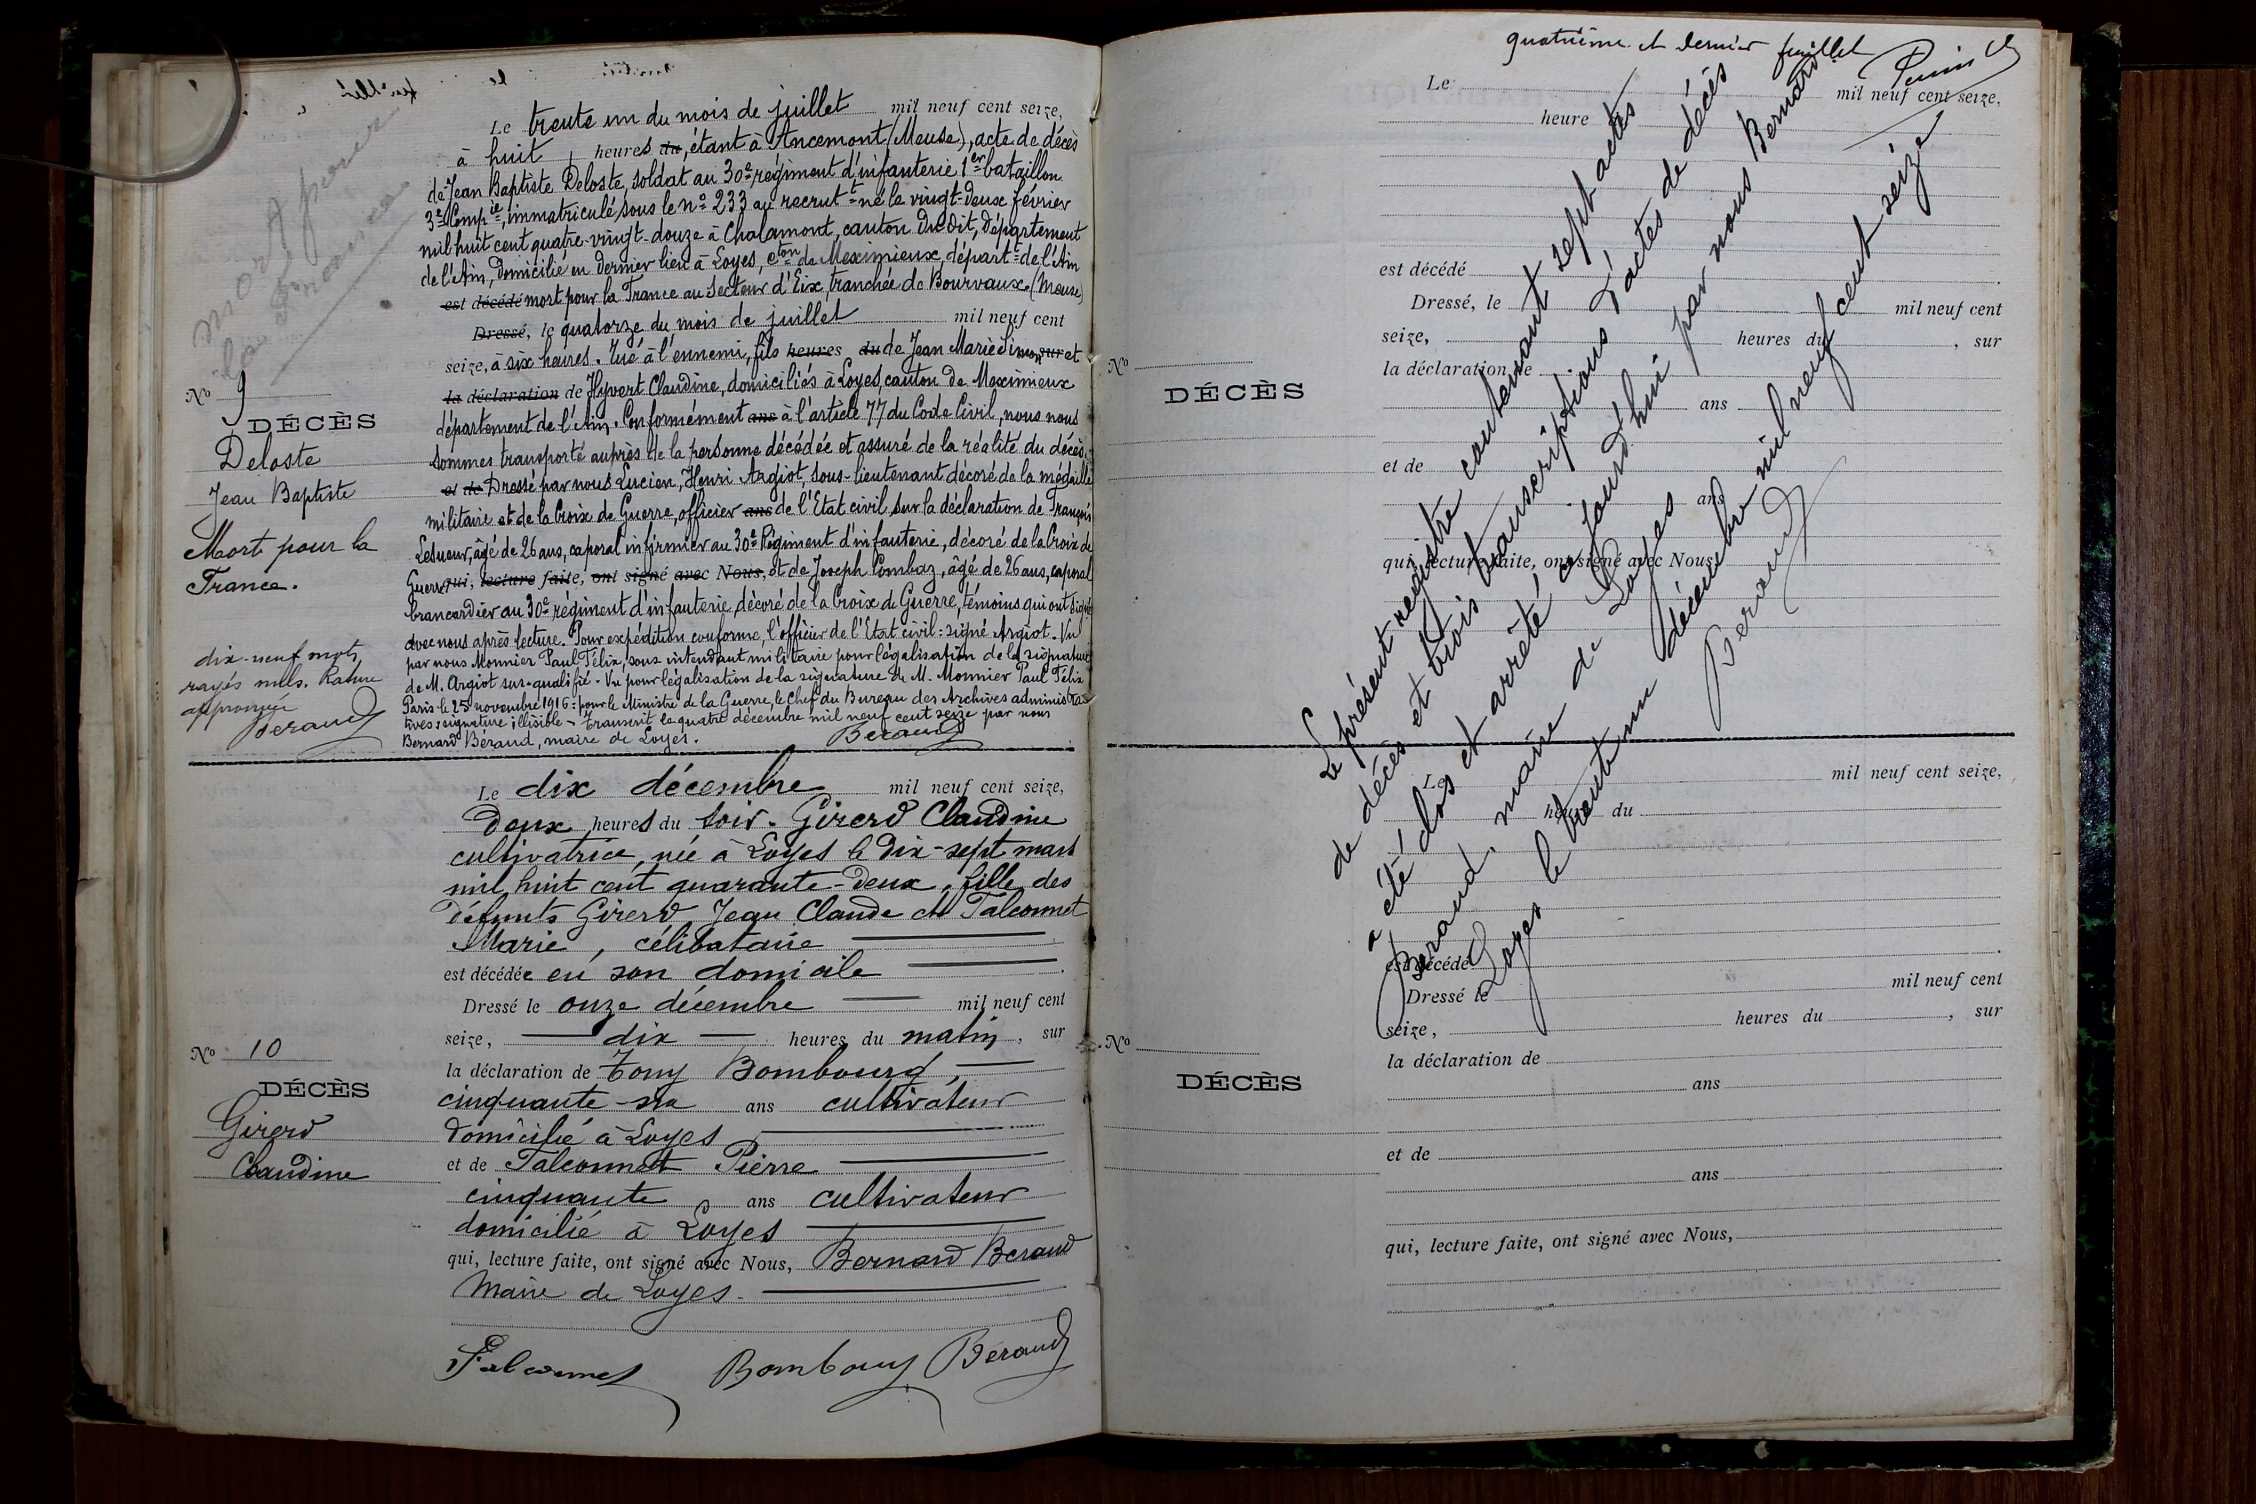 Le trente un du mois de juillet mil neuf cent seize,
à huit heures du, étant à Ancemont (Meuse), acte de décès
de Jean Baptiste Deloste, soldat au 30e régiment d'infanterie 1er bataillon
3e Compie, immatriculé sous le no 233 au recrutt né le vingt-deux février
mil huit cent quatre-vingt-douze à Chalamont, canton dudit, département
de l'Ain, domicilié en dernier lieu à Loyes, cton de Meximieux, départt de l'Ain
est décédé mort pour la France au Secteur d'Eix, tranchée de Bourvaux (Meuse)
Dressé, le quatorze du mois de juillet mil neuf cent
seize, à six heures. Tué à l'ennemi, fils heures du de Jean Marie Simon sur et
la déclaration de Hyvert Claudine, domiciliés à Loyes, canton de Meximieux
département de l'Ain. Conformément ans à l'article 77 du Code Civil, nous nous
sommes transporté auprès de la personne décédée et assuré de la réalité du décès.
et de Dressé par nous Lucien, Henri Argiot, sous-lieutenant décoré de la médaille
militaire et de la Croix de Guerre, officier ans de l'Etat civil sur la déclaration de François
Lesueur, âgé de 26 ans, caporal infirmier au 30e Régiment d'infanterie, décoré de la Croix de
Guerre qui, lecture faite, ont signé avec Nous, et de Joseph Combaz, âgé de 26 ans, caporal
brancardier au 30e régiment d'infanterie, décoré de la Croix de Guerre, témoins qui ont signé
avec nous après lecture. Pour expédition conforme, l'officier de l'Etat civil : signé Argiot. Vu
par nous Monnier Paul Félix, sous intendant militaire pour légalisation de la signature
de M. Argiot sus-qualifié. Vu pour légalisation de la signature de M. Monnier Paul Félix
Paris le 25 novembre 1916 : pour le Ministre de la Guerre, le Chef du Bureau des Archives administra-
tives : signature illisible - Transcrit le quatre décembre mil neuf cent seize par nous
Bernard Béraud, maire de Loyes. Beraud
mort pour
la France
No 9
DÉCÈS
Deloste
Jean Baptiste
Mort pour la
France.
dix-neuf mots
rayés nuls. Rature
approuvée
Beraud
Le dix décembre mil neuf cent seize,
Deux heures du soir. Girerd Claudine
cultivatrice, née à Loyes le dix-sept mars
mil huit cent quarante-deux, fille des
défunts Girerd Jean Claude et Falconnet
Marie, célibataire
est décédée en son domicile
Dressé le onze décembre mil neuf cent
seize, dix heures du matin, sur
la déclaration de Tony Bombourg,
cinquante-six ans cultivateur
domicilié à Loyes
et de Falconnet Pierre
cinquante ans cultivateur
domicilié à Loyes
qui, lecture faite, ont signé avec Nous, Bernard Beraud
Maire de Loyes.
Falconnet Bombourg Béraud
No 10
DÉCÈS
Girerd
Claudine
quatrième et dernier feuillet
Le mil neuf cent seize,
heure
est décédé
Dressé, le mil neuf cent
seize, heures du , sur
la déclaration de
ans
et de
ans
qui, lecture faite, ont signé avec Nous
No
DÉCÈS
Le présent registre contenant sept actes
de décès et trois transcriptions d'actes de décès
a été clos et arrêté ce jourd'hui par nous Bernard
Beraud, maire de Loyes
Loyes le trente un décembre mil neuf cent seize
Beraud
Le mil neuf cent seize,
heure du
est décédé
Dressé le mil neuf cent
seize, heures du , sur
la déclaration de
ans
et de
ans
qui, lecture faite, ont signé avec Nous,
No
DÉCÈS